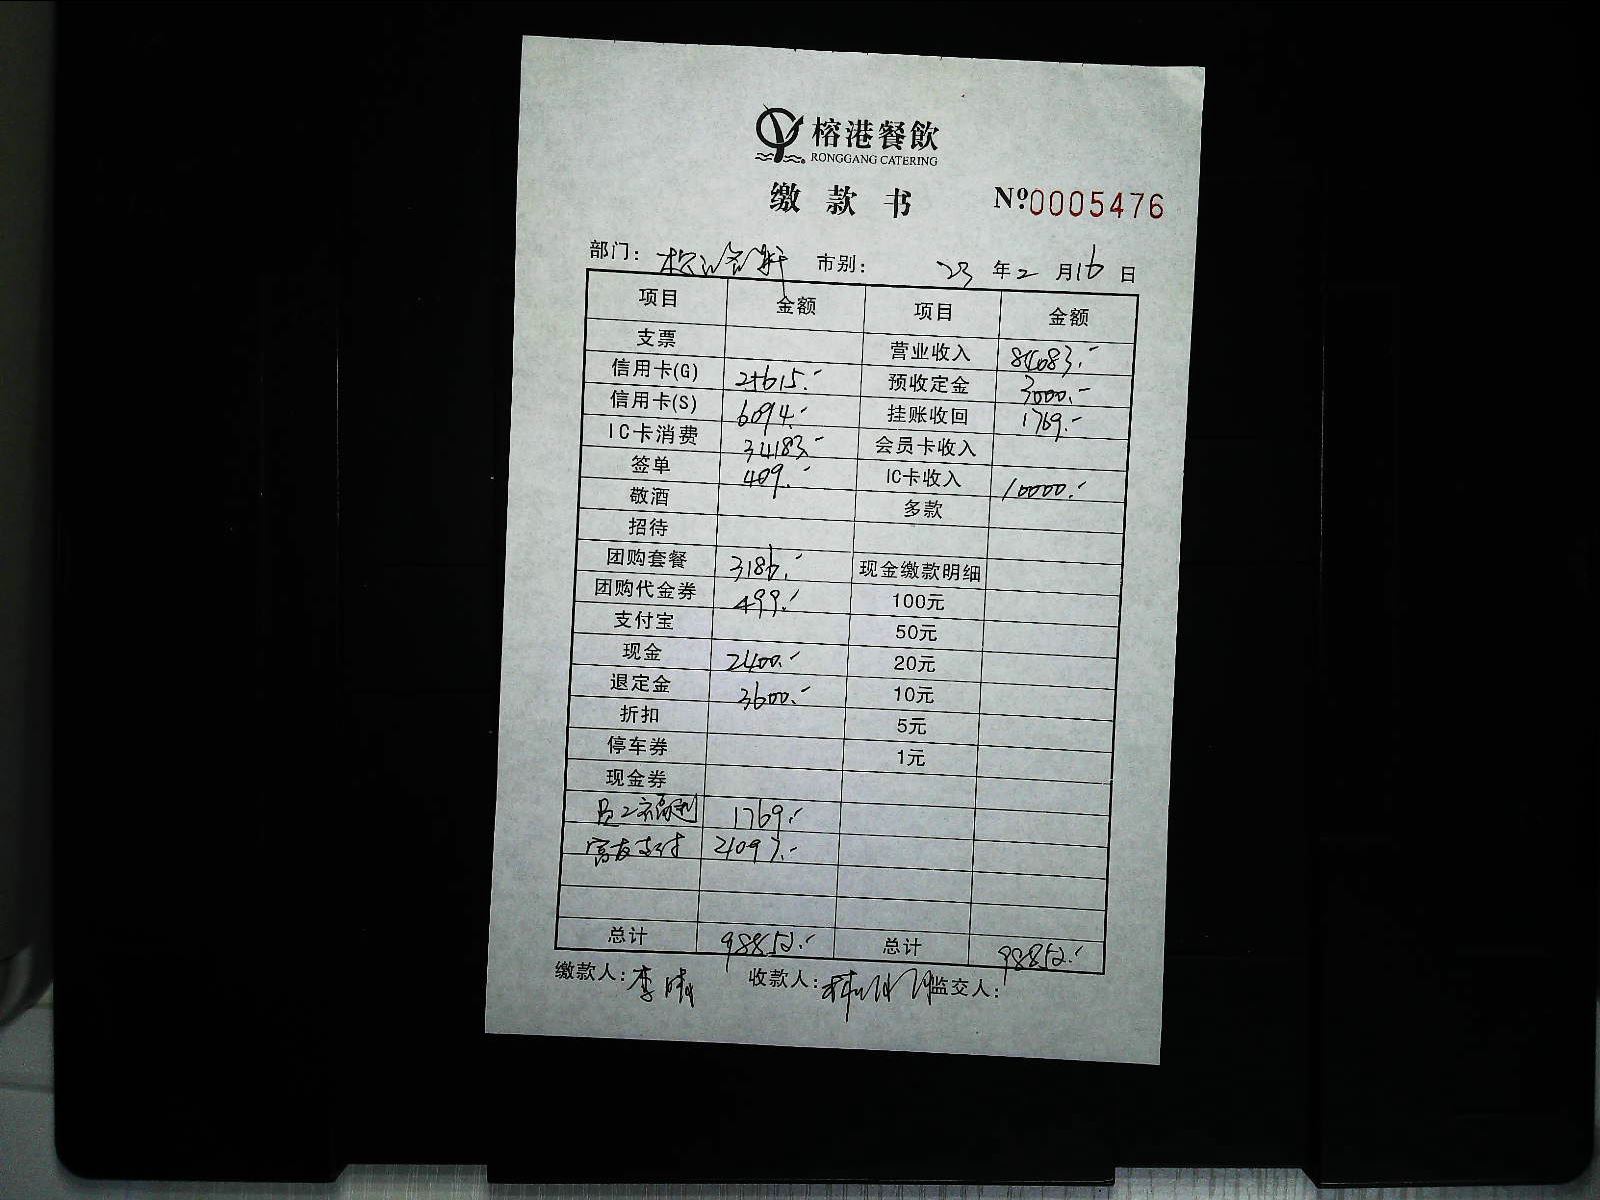 榕港餐飲
RONGGANG CATERING
缴款书 Nº:0005476
部门: 市别: 23年2月16日
项目 金额 项目 金额
支票 营业收入 84083.-
信用卡(G) 25615.- 预收定金 3000.-
信用卡(S) 6094.- 挂账收回 1769.-
IC卡消费 34183.- 会员卡收入
签单 409.- IC卡收入 10000.-
敬酒 多款
招待
团购套餐 3186.- 现金缴款明细
团购代金券 499.- 100元
支付宝 50元
现金 2400.- 20元
退定金 3600.- 10元
折扣 5元
停车券 1元
现金券
员工福利 1769.-
富友支付 21097.-
总计 98852.- 总计 98852.-
缴款人: 李 收款人: 监交人: